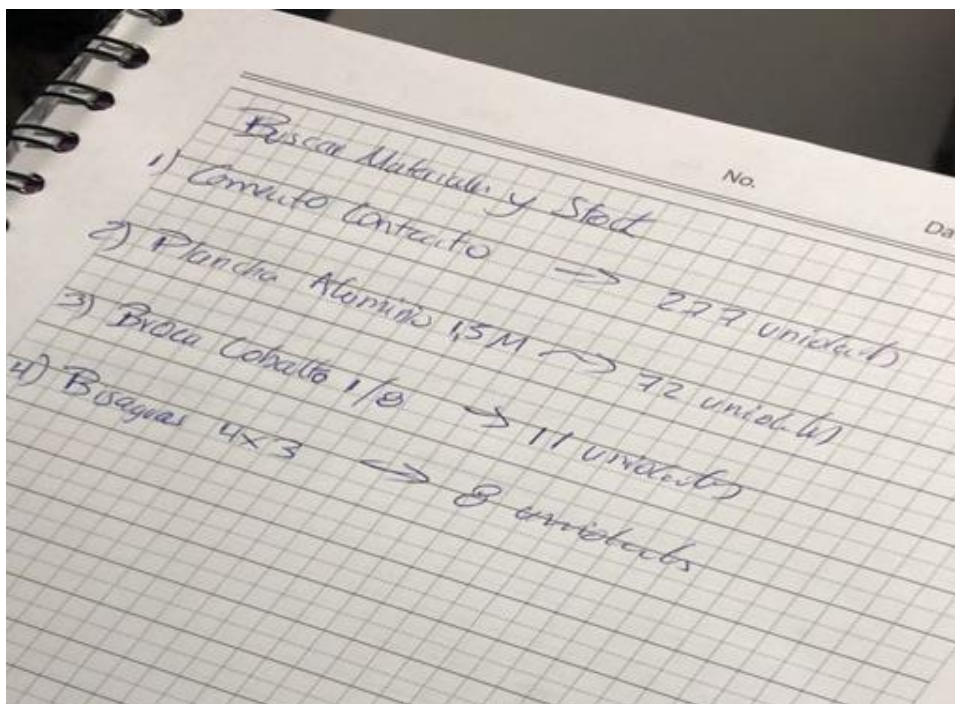 No.
Da
Buscar Materiales y Stock
1) Concreto → 227 unidades
2) Plancha Aluminio 1,5M → 72 unidades
3) Broca Cobalto 1/8 → 11 unidades
4) Bisagras 4x3 → 8 unidades